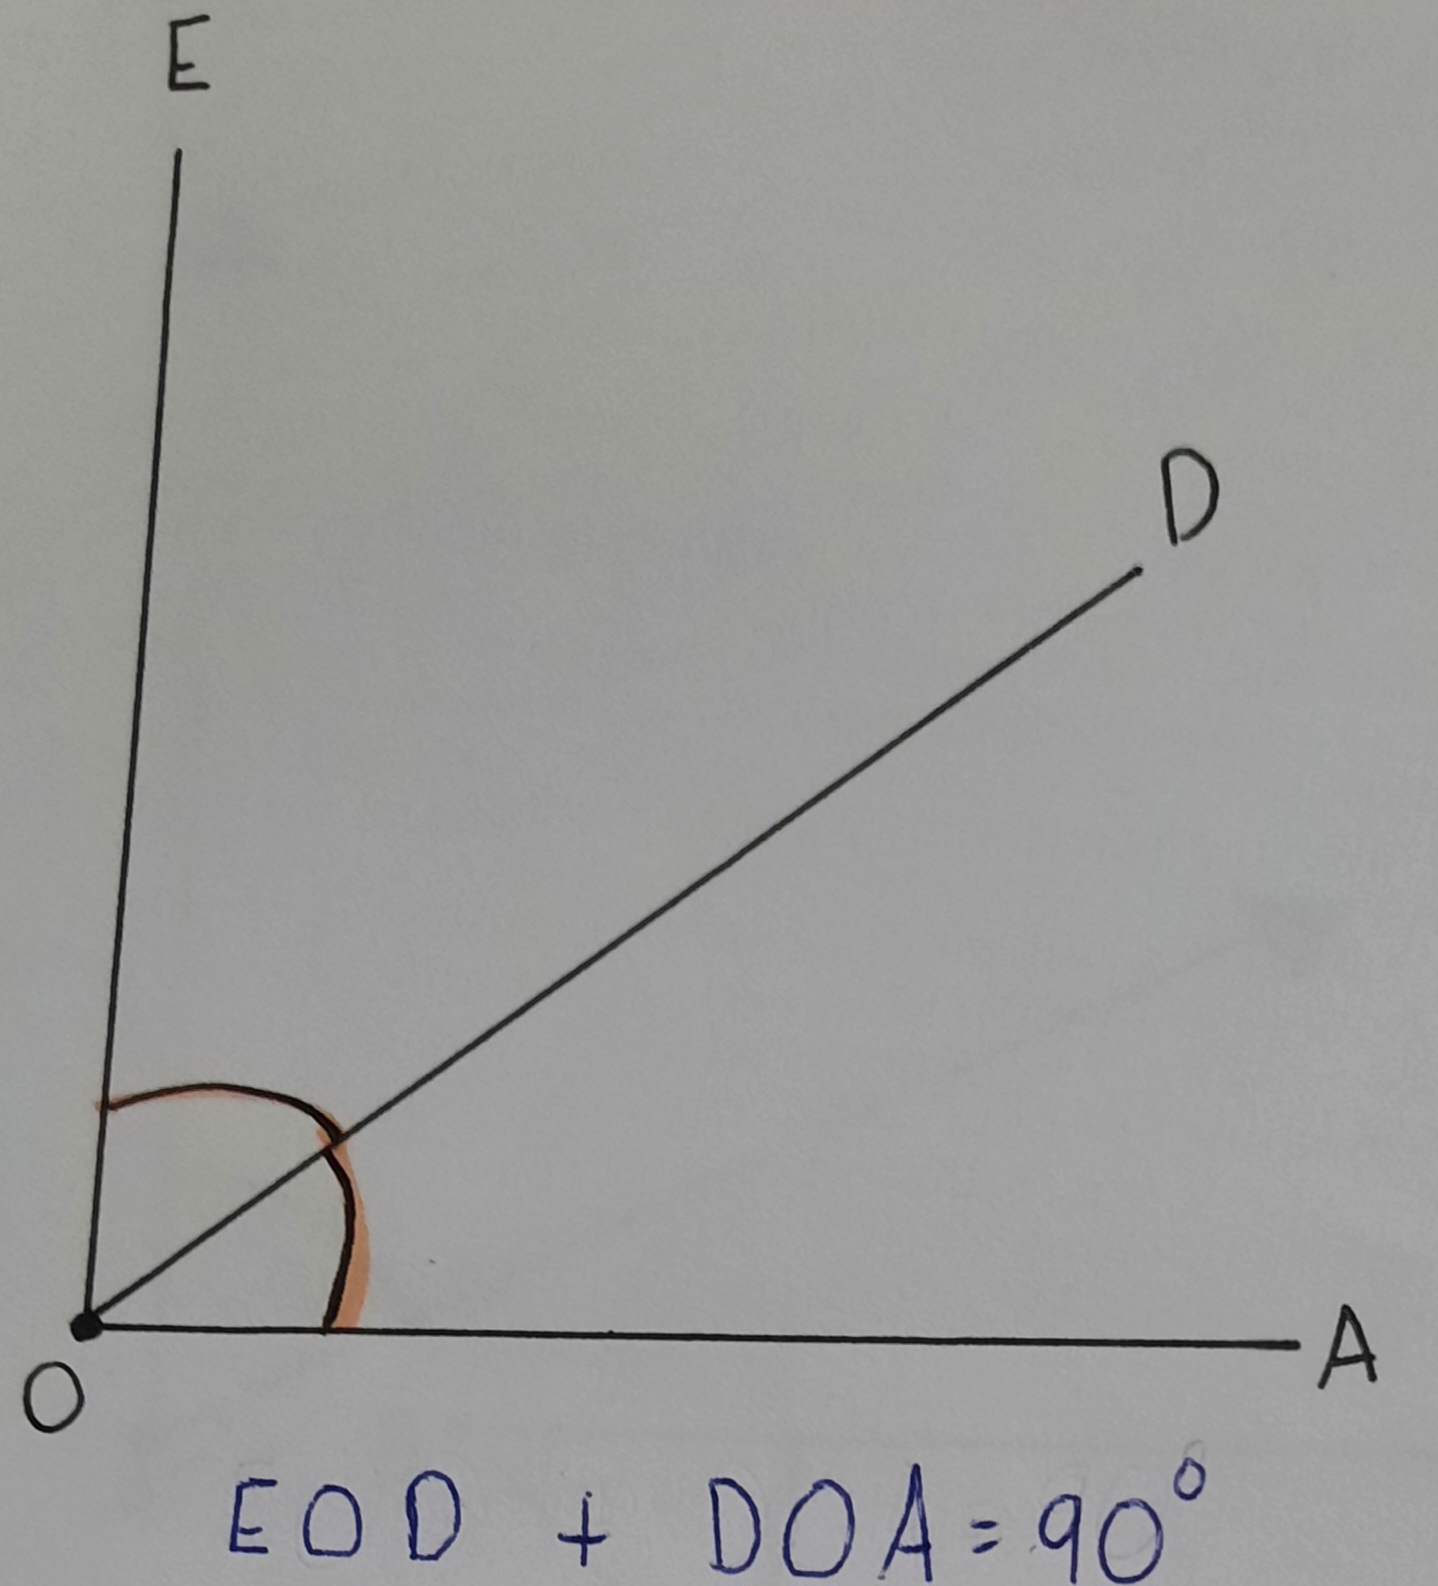 E
D
O
A
EOD + DOA = 90°